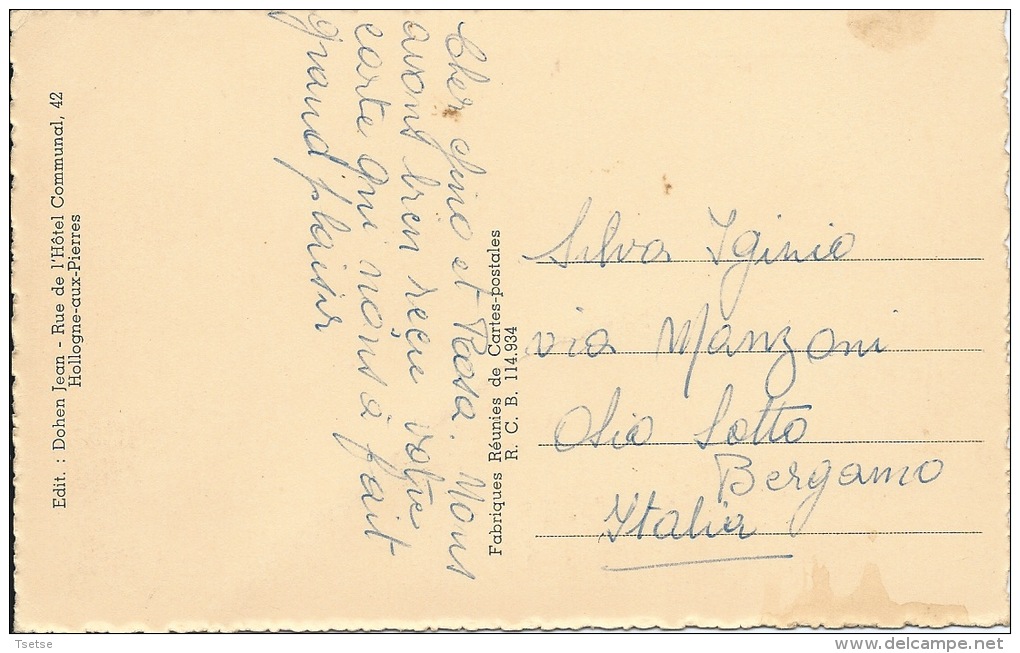 Edit. : Dohen Jean - Rue de l'Hôtel Communal, 42
Hollogne-aux-Pierres
Cher Gino et Rosa. Nous
avons bien reçu votre
carte qui nous a fait
grand plaisir
Fabriques Réunies de Cartes-postales
R. C. B. 114.934
Silva Iginio
via Manzoni
Osio Sotto
Bergamo
Italia
Tsetse
www.delcampe.net